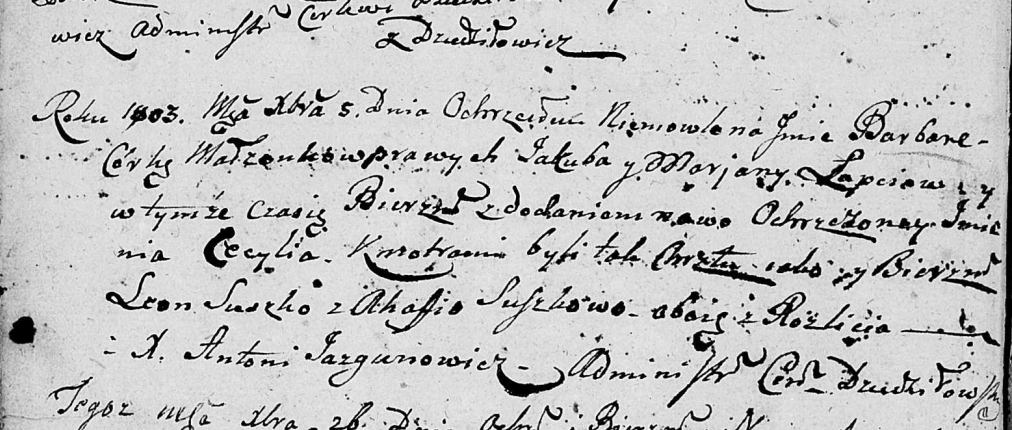 wicz Administr Cerkwi
z Dziedziłowicz
Roku 1803. Msca Xbra 5. Dnia Ochrzciłem Niemowlę na Jmie Barbare-
Córkę Małżonkow prawych Jakuba y Marjany Łapciow, y
w tymże Czasię Bierzm z dodaniem nowo Ochrzczonay Jmie
nia Cecylia. Kmotrami byli tak Chrztu iako y Bierzm
Leon Suszko z Ahafią Suszkowo - oboię z Rozlicia
- X. Antoni Jazgunowicz - Administr Cerk Dziedziłow
Tegoz Msca Xbra 26. Dnia Ochrz y Bierzm N